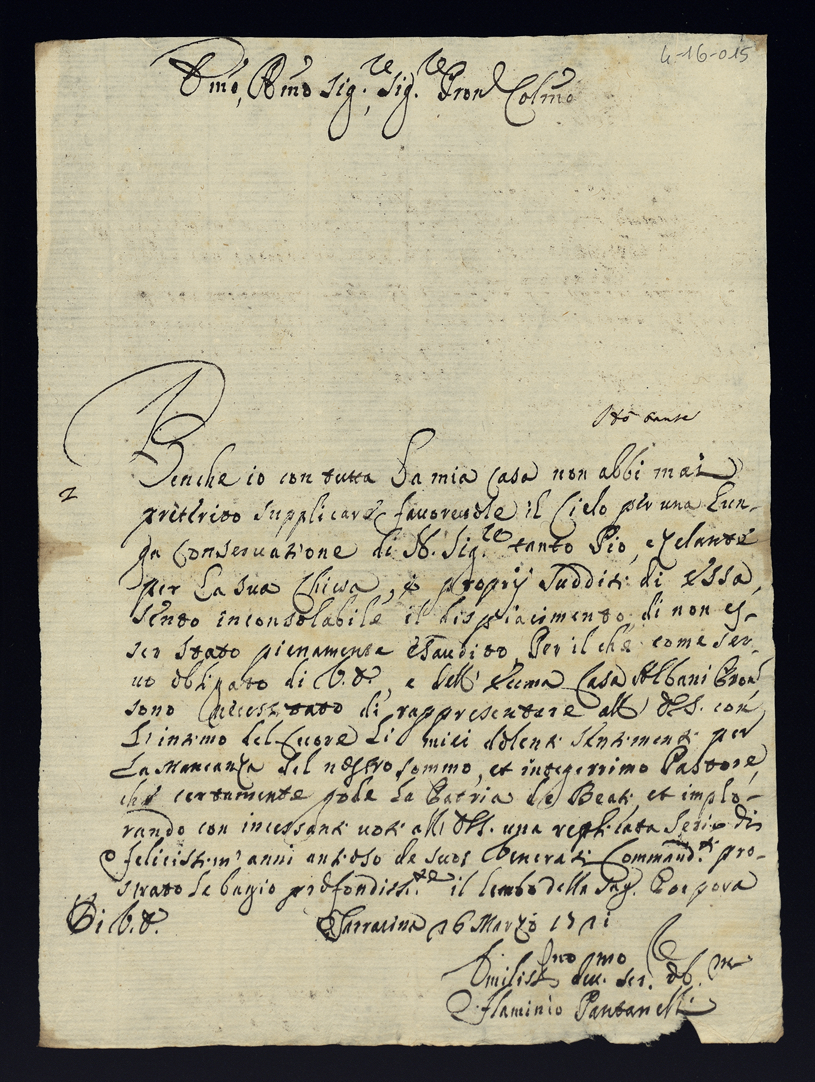 4-16-015
Emo, Rmo Sig.re, Sig.re Pron Colmo
Benche io con tutta la mia Casa non abbi mai
2
preterito supplicare favorevole il Cielo per una Lun-
ga Conservatione di N. Sig.re tanto Pio, e zelante
per La sua Chiesa, e proprij sudditi di essa,
sento inconsolabile il dispiacimento di non es-
ser stato pienamente esaudito, Per il che come ser-
vo obligato di V.E., e dell' Ecc.ma Casa Albani Pron
sono necessitato di rappresentare all' E.S. con
L'intimo del Cuore Li miei dolenti sentimenti per
La Mancanza del nostro sommo, et integerrimo Pastore,
che certamente gode La Patria de Beati, et implo-
rando con incessanti voti all' E.S. una replicata Serie di
felicissimi anni ansioso de suoi Venerati Command.ti pro-
strato Le bagio profondiss.te il lembo della Sag. Porpora
Di V.E. Terracina 16 Marzo 1721
Umiliss Dev. ser. ob.
Flaminio Pantanelli